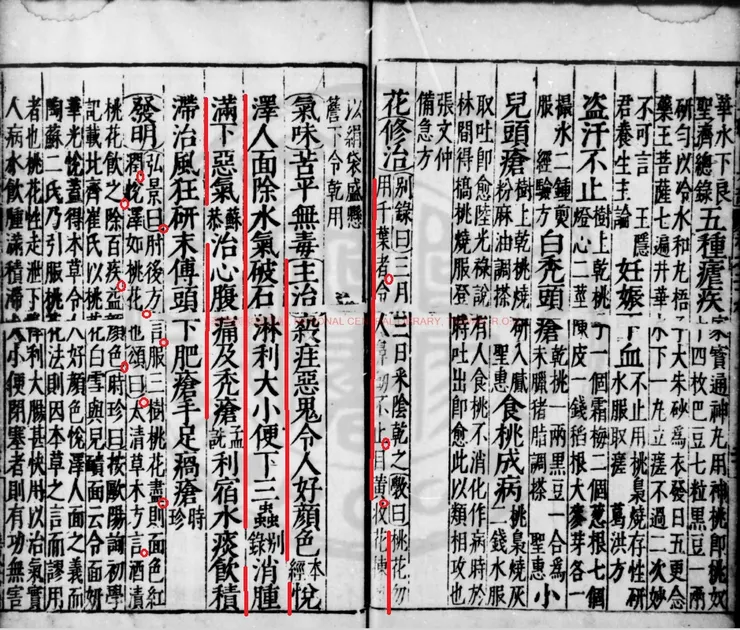 華水下良
聖濟總錄
五種瘧疾
家寶通神丸用神桃即桃奴
十四枚巴豆七粒黑豆一兩
研勻以冷水和丸梧子大朱砂為衣發日五更念
藥王菩薩七遍井華水下一丸立瘥不過二次妙
不可言 王隱
君養生主論
妊娠下血
不止用桃梟燒存性研
水服取瘥 葛洪方
盜汗不止
樹上乾桃子一個霜梅二個葱根七個
燈心二莖陳皮一錢稻根大麥芽各一
撮水二鍾煎
服 經驗方
白禿頭瘡
乾桃一兩黑豆一合為
末臘猪脂調搽 聖惠
小
兒頭瘡
樹上乾桃燒研入膩
粉麻油調搽 聖惠
食桃成病
桃梟燒灰
二錢水服
取吐即愈陸光祿說有人食桃不消化作病時於
林間得槁桃燒服登時吐出即愈此以類相攻也
張文仲
備急方
花修治
別錄曰三月三日采陰乾之斅曰桃花勿
用千葉者令人鼻衄不止目黃收花揀
以絹袋盛懸
簷下令乾用
氣味苦平無毒主治殺疰惡鬼令人好顏色本經悅
澤人面除水氣破石淋利大小便下三蟲別錄消腫
滿下惡氣蘇恭治心腹痛及禿瘡孟詵利宿水痰飲積
滯治風狂研末傅頭下肥瘡手足㾴瘡時珍
發明
弘景曰肘後方言服三樹桃花盡則面色紅
潤悅澤如桃花也頌曰太清草木方言酒漬
桃花飲之除百疾益顏色時珍曰按歐陽詢初學
記載北齊崔氏以桃花白雪與兒靧面云令面妍
華光悅蓋得本草令人好顏色悅澤人面之義而
陶蘇二氏乃引服桃花法則因本草之言而謬用
者也桃花性走泄下降利大腸甚快用以治氣實
人病水飲腫滿積滯大小便閉塞者則有功無害